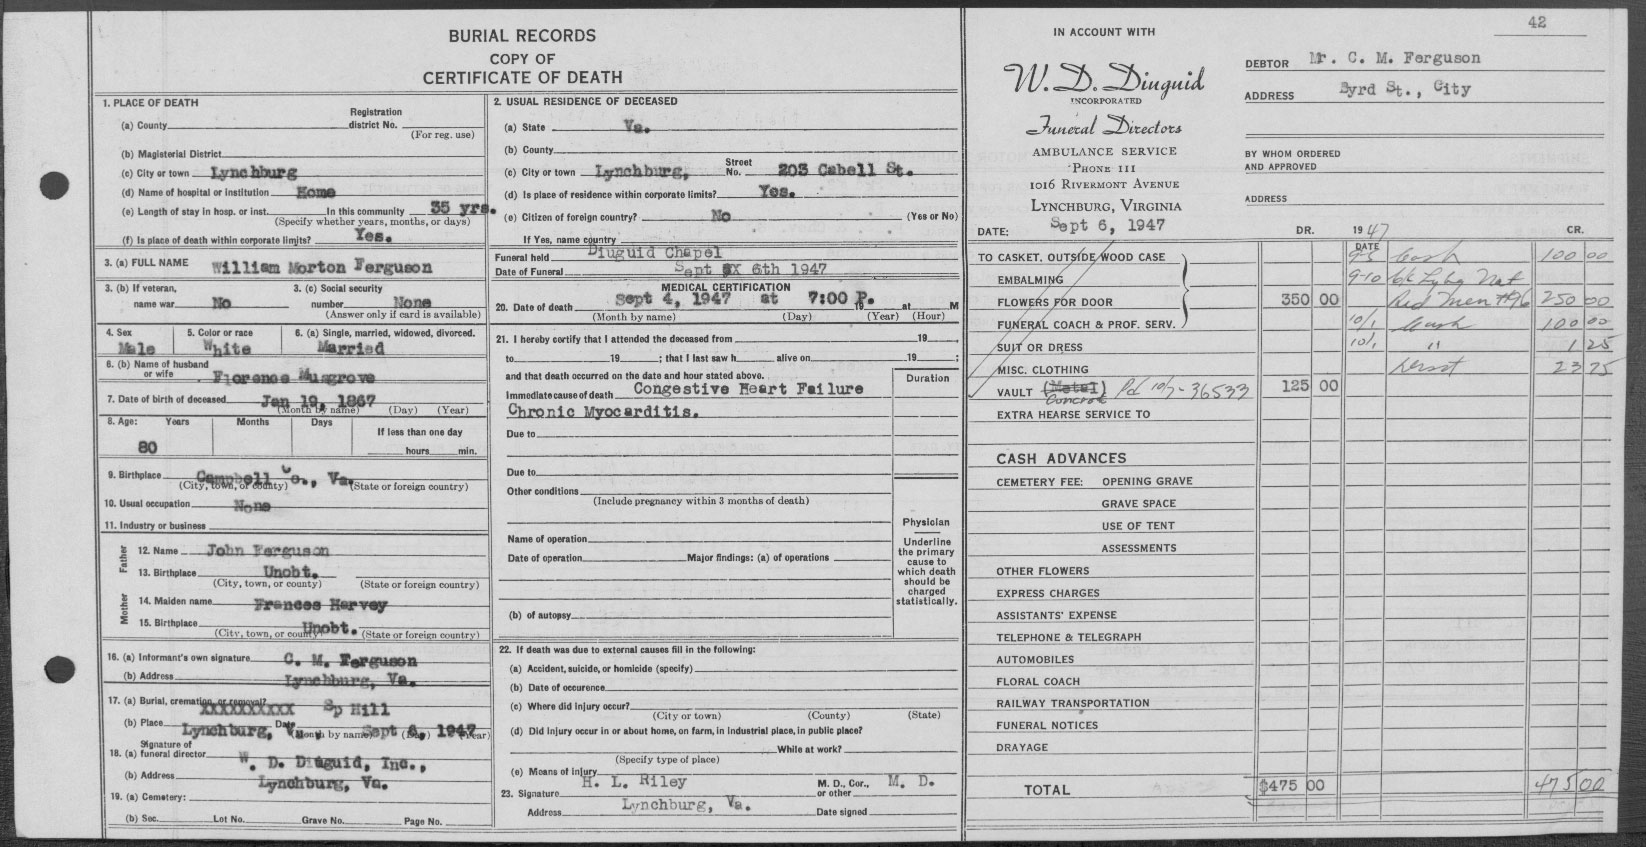 BURIAL RECORDS
COPY OF
CERTIFICATE OF DEATH
1. PLACE OF DEATH
Registration
(a) County district No.
(For reg. use)
(b) Magisterial District
(c) City or town Lynchburg
(d) Name of hospital or institution Home
(e) Length of stay in hosp. or inst. In this community 35 yrs.
(Specify whether years, months, or days)
(f) Is place of death within corporate limits? Yes.
3. (a) FULL NAME William Morton Ferguson
3. (b) If veteran, 3. (c) Social security
name war No number None
(Answer only if card is available)
4. Sex 5. Color or race 6. (a) Single, married, widowed, divorced.
Male White Married
6. (b) Name of husband
or wife Florence Musgrove
7. Date of birth of deceased Jan 19, 1867
(Month by name) (Day) (Year)
8. Age: Years Months Days If less than one day
80 hours min.
9. Birthplace Campbell Co., Va.
(City, town, or county) (State or foreign country)
10. Usual occupation None
11. Industry or business
Father
12. Name John Ferguson
13. Birthplace Unobt.
(City, town, or county) (State or foreign country)
Mother
14. Maiden name Frances Harvey
15. Birthplace Unobt.
(City, town, or county) (State or foreign country)
16. (a) Informant's own signature C. M. Ferguson
(b) Address Lynchburg, Va.
17. (a) Burial, cremation, or removal? XXXXXXXXXX Sp Hill
(b) Place Lynchburg, Va. Date Sept 6, 1947
(Month by name) (Day) (Year)
Signature of
18. (a) funeral director W. D. Diuguid, Inc.,
(b) Address Lynchburg, Va.
19. (a) Cemetery:
(b) Sec. Lot No. Grave No. Page No.
2. USUAL RESIDENCE OF DECEASED
(a) State Va.
(b) County
(c) City or town Lynchburg, Street No. 203 Cabell St.
(d) Is place of residence within corporate limits? Yes.
(e) Citizen of foreign country? No (Yes or No)
If Yes, name country
Funeral held Diuguid Chapel
Date of Funeral Sept 6th 1947
MEDICAL CERTIFICATION
20. Date of death Sept 4, 1947 at 7:00 P. 19 at M
(Month by name) (Day) (Year) (Hour)
21. I hereby certify that I attended the deceased from 19 ,
to 19 ; that I last saw h alive on 19 ;
and that death occurred on the date and hour stated above.
Duration
Immediate cause of death Congestive Heart Failure
Chronic Myocarditis.
Due to
Due to
Other conditions
(Include pregnancy within 3 months of death)
Physician
Underline
the primary
cause to
which death
should be
charged
statistically.
Name of operation
Date of operation Major findings: (a) of operations
(b) of autopsy
22. If death was due to external causes fill in the following:
(a) Accident, suicide, or homicide (specify)
(b) Date of occurence
(c) Where did injury occur?
(City or town) (County) (State)
(d) Did injury occur in or about home, on farm, in industrial place, in public place?
While at work?
(Specify type of place)
(e) Means of injury
23. Signature H. L. Riley M. D., Cor., or other M. D.
Address Lynchburg, Va. Date signed
42
IN ACCOUNT WITH
W. D. Diuguid
INCORPORATED
Funeral Directors
AMBULANCE SERVICE
PHONE 111
1016 RIVERMONT AVENUE
LYNCHBURG, VIRGINIA
DEBTOR Mr. C. M. Ferguson
ADDRESS Byrd St., City
BY WHOM ORDERED
AND APPROVED
ADDRESS
DATE: Sept 6, 1947 DR. 1947 CR.
DATE
TO CASKET, OUTSIDE WOOD CASE 9-5 Cash 100 00
EMBALMING 9-10 Lybg Nat
FLOWERS FOR DOOR 350 00 Red Men #96 250 00
FUNERAL COACH & PROF. SERV. 10/1 Cash 100 00
SUIT OR DRESS 10/1 " 1 25
MISC. CLOTHING 23 75
VAULT (Metal) Concrete Pd 10/7-36533 125 00
EXTRA HEARSE SERVICE TO
CASH ADVANCES
CEMETERY FEE: OPENING GRAVE
GRAVE SPACE
USE OF TENT
ASSESSMENTS
OTHER FLOWERS
EXPRESS CHARGES
ASSISTANTS' EXPENSE
TELEPHONE & TELEGRAPH
AUTOMOBILES
FLORAL COACH
RAILWAY TRANSPORTATION
FUNERAL NOTICES
DRAYAGE
TOTAL $475 00 475 00